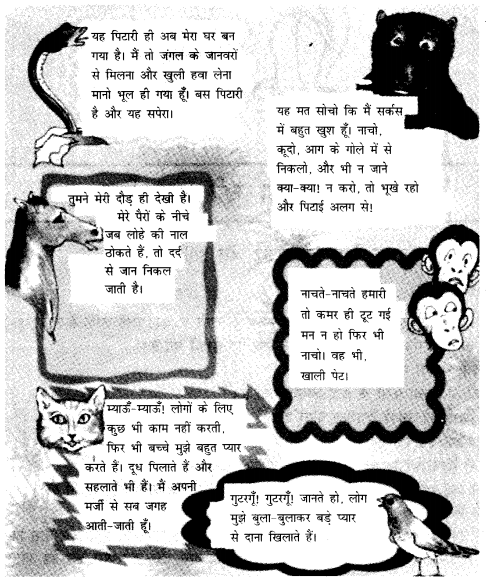 यह पिटारी ही अब मेरा घर बन
गया है। मैं तो जंगल के जानवरों
से मिलना और खुली हवा लेना
मानो भूल ही गया हूँ। बस पिटारी
है और यह सपेरा।
यह मत सोचो कि मैं सर्कस
में बहुत खुश हूँ। नाचो,
कूदो, आग के गोले में से
निकलो, और भी न जाने
क्या-क्या! न करो, तो भूखे रहो
और पिटाई अलग से!
तुमने मेरी दौड़ ही देखी है।
मेरे पैरों के नीचे
जब लोहे की नाल
ठोकते हैं, तो दर्द
से जान निकल
जाती है।
नाचते-नाचते हमारी
तो कमर ही टूट गई
मन न हो फिर भी
नाचो। वह भी,
खाली पेट।
म्याऊँ-म्याऊँ! लोगों के लिए
कुछ भी काम नहीं करती,
फिर भी बच्चे मुझे बहुत प्यार
करते हैं। दूध पिलाते हैं और
सहलाते भी हैं। मैं अपनी
मर्जी से सब जगह
आती-जाती हूँ।
गुटरगूँ! गुटरगूँ! जानते हो, लोग
मुझे बुला-बुलाकर बड़े प्यार
से दाना खिलाते हैं।